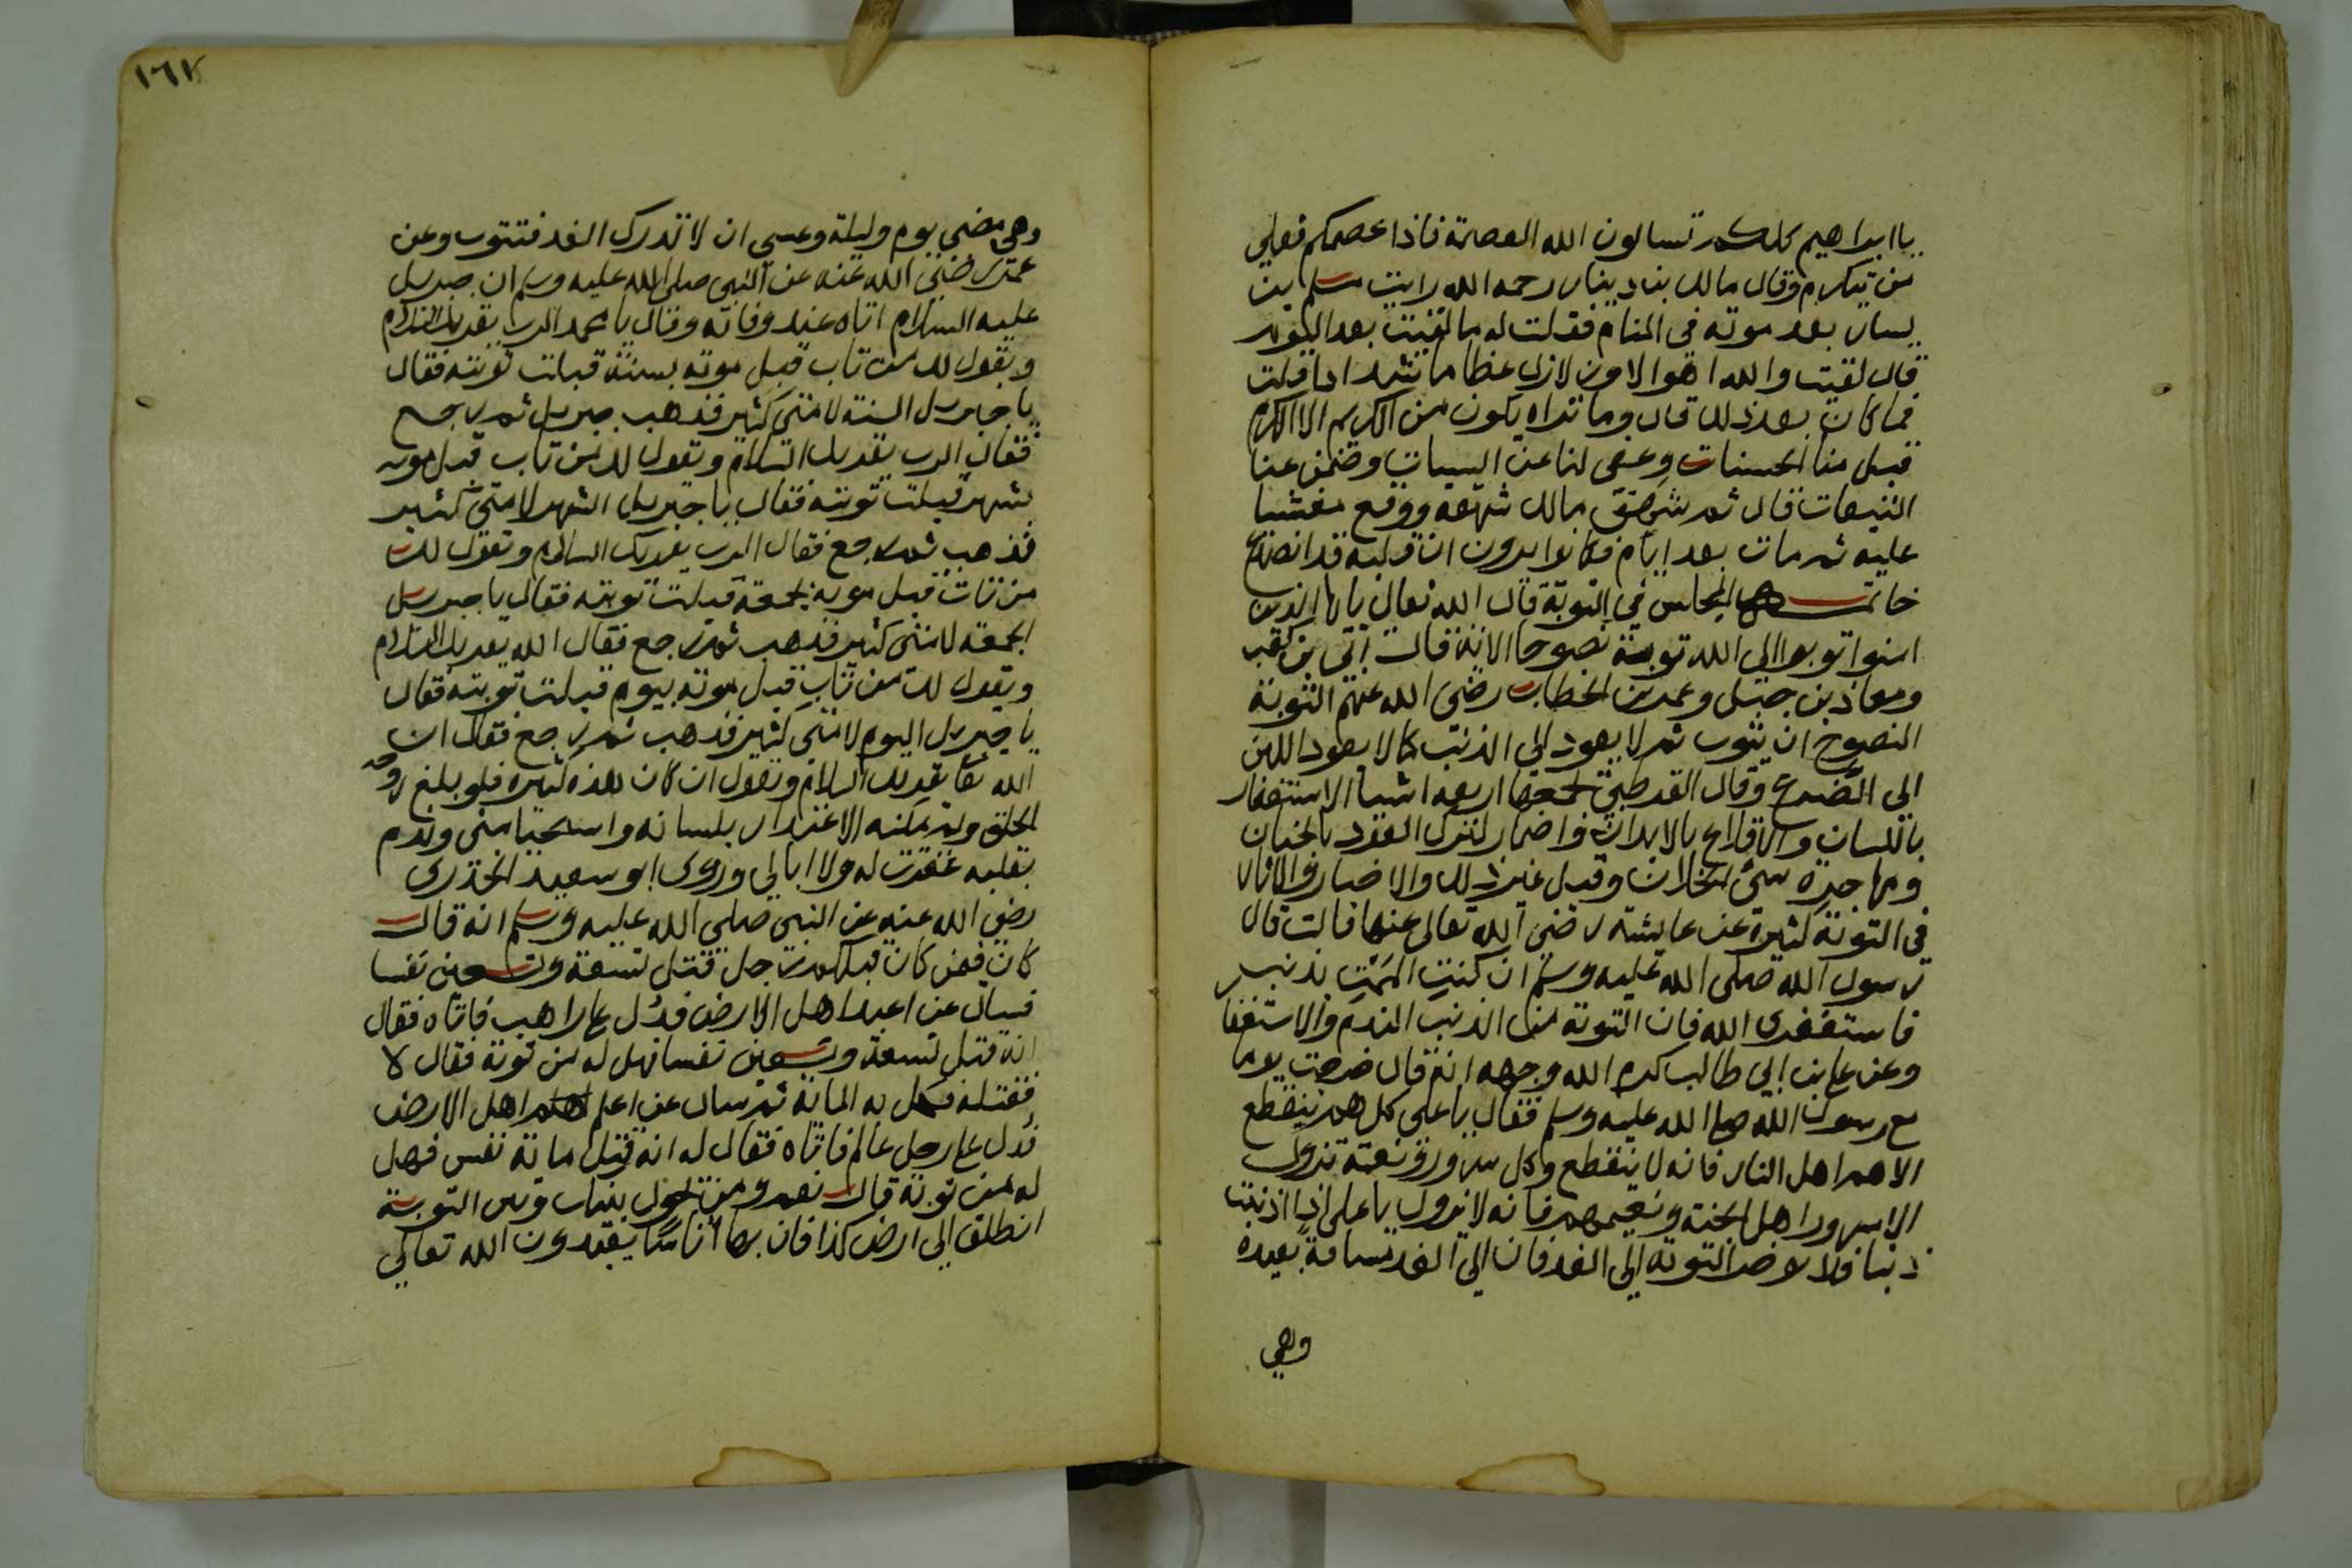 يا ابراهيم كلكم تسالون الله العصمة فاذا عصمكم فعلى
من يتكرم وقال مالك بن دينار رحمه الله رايت مسلم بن
يسار بعد موته في المنام فقلت له ما لقيت بعد الموت
قال لقيت والله اهوالا وزلازل عظاما شدادا قلت
فما كان بعد ذلك قال وما تراه يكون من الكريم الا الكرم
قبل منا الحسنات وعفى لنا عن السيات وضمن عنا
التبعات قال ثم شهق مالك شهقة ووقع مغشيا
عليه ثم مات بعد ايام فكانوا يرون ان قلبه قد انصدع
خاتمة المجلس في التوبة قال الله تعالى يا ايها الذين
امنوا توبوا الى الله توبة نصوحا الاية قال ابي بن كعب
ومعاذ بن جبل وعمر بن الخطاب رضي الله عنهم التوبة
النصوح ان يتوب ثم لا يعود الى الذنب كما لا يعود اللبن
الى الضرع وقال القرطبي يجمعها اربعة اشيا الاستغفار
باللسان والاقلاع بالابدان واضمار لترك العود بالجنان
ومهاجرة سيئ الخلان وقيل غير ذلك والاخبار والاثار
في التوبة كثيرة عن عايشة رضي الله تعالى عنها قالت قال
رسول الله صلى الله عليه وسلم ان كنت الممت بذنب
فاستغفري الله فان التوبة من الذنب الندم والاستغفا
وعن علي بن ابي طالب كرم الله وجهه انه قال خرجت يوما
مع رسول الله صلى الله عليه وسلم فقال يا علي كل هم ينقطع
الا هم اهل النار فانه لا ينقطع وكل سرور ونعمة تزول
الا سرور اهل الجنة ونعيمهم فانه لا يزول يا علي اذا اذنبت
ذنبا فلا توخر التوبة الى الغد فان الى الغد مسافة بعيدة
وهي
وهي مضي يوم وليلة وعسي ان لا تدرك الغد فتتوب وعن
عمر رضي الله عنه عن النبي صلى الله عليه وسلم ان جبريل
عليه السلام اتاه عند وفاته وقال يا محمد الرب يقريك السلام
ويقول لك من تاب قبل موته بسنة قبلت توبته فقال
يا جبريل السنة لامتي كثير فذهب جبريل ثم رجع
فقال الرب يقريك السلام ويقول لك من تاب قبل موته
بشهر قبلت توبته فقال يا جبريل الشهر لامتي كثير
فذهب ثم رجع فقال الرب يقريك السلام ويقول لك
من تاب قبل موته بجمعة قبلت توبته فقال يا جبريل
الجمعة لامتي كثير فذهب ثم رجع فقال الله يقريك السلام
ويقول لك من تاب قبل موته بيوم قبلت توبته فقال
يا جبريل اليوم لامتي كثير فذهب ثم رجع فقال ان
الله تعا يقريك السلام ويقول ان كان هذه كثيرة فلو بلغ روحه
الحلق ولم يمكنه الاعتذار بلسانه واستحيا مني وندم
بقلبه غفرت له ولا ابالي وروي ابو سعيد الخدري
رضي الله عنه عن النبي صلى الله عليه وسلم انه قال
كان فمن كان قبلكم رجل قتل تسعة وتسعين نفسا
فسال عن اعبد اهل الارض فدل على راهب فاتاه فقال
انه قتل تسعة وتسعين نفسا فهل له من توبة فقال لا
فقتله فكمل به الماية ثم سال عن اعلم اهل الارض
فدل على رجل عالم فاتاه فقال له انه قتل ماية نفس فهل
له من توبة قال نعم ومن يحول بينك وبين التوبة
انطلق الى ارض كذا فان بها اناسا يعبدون الله تعالى